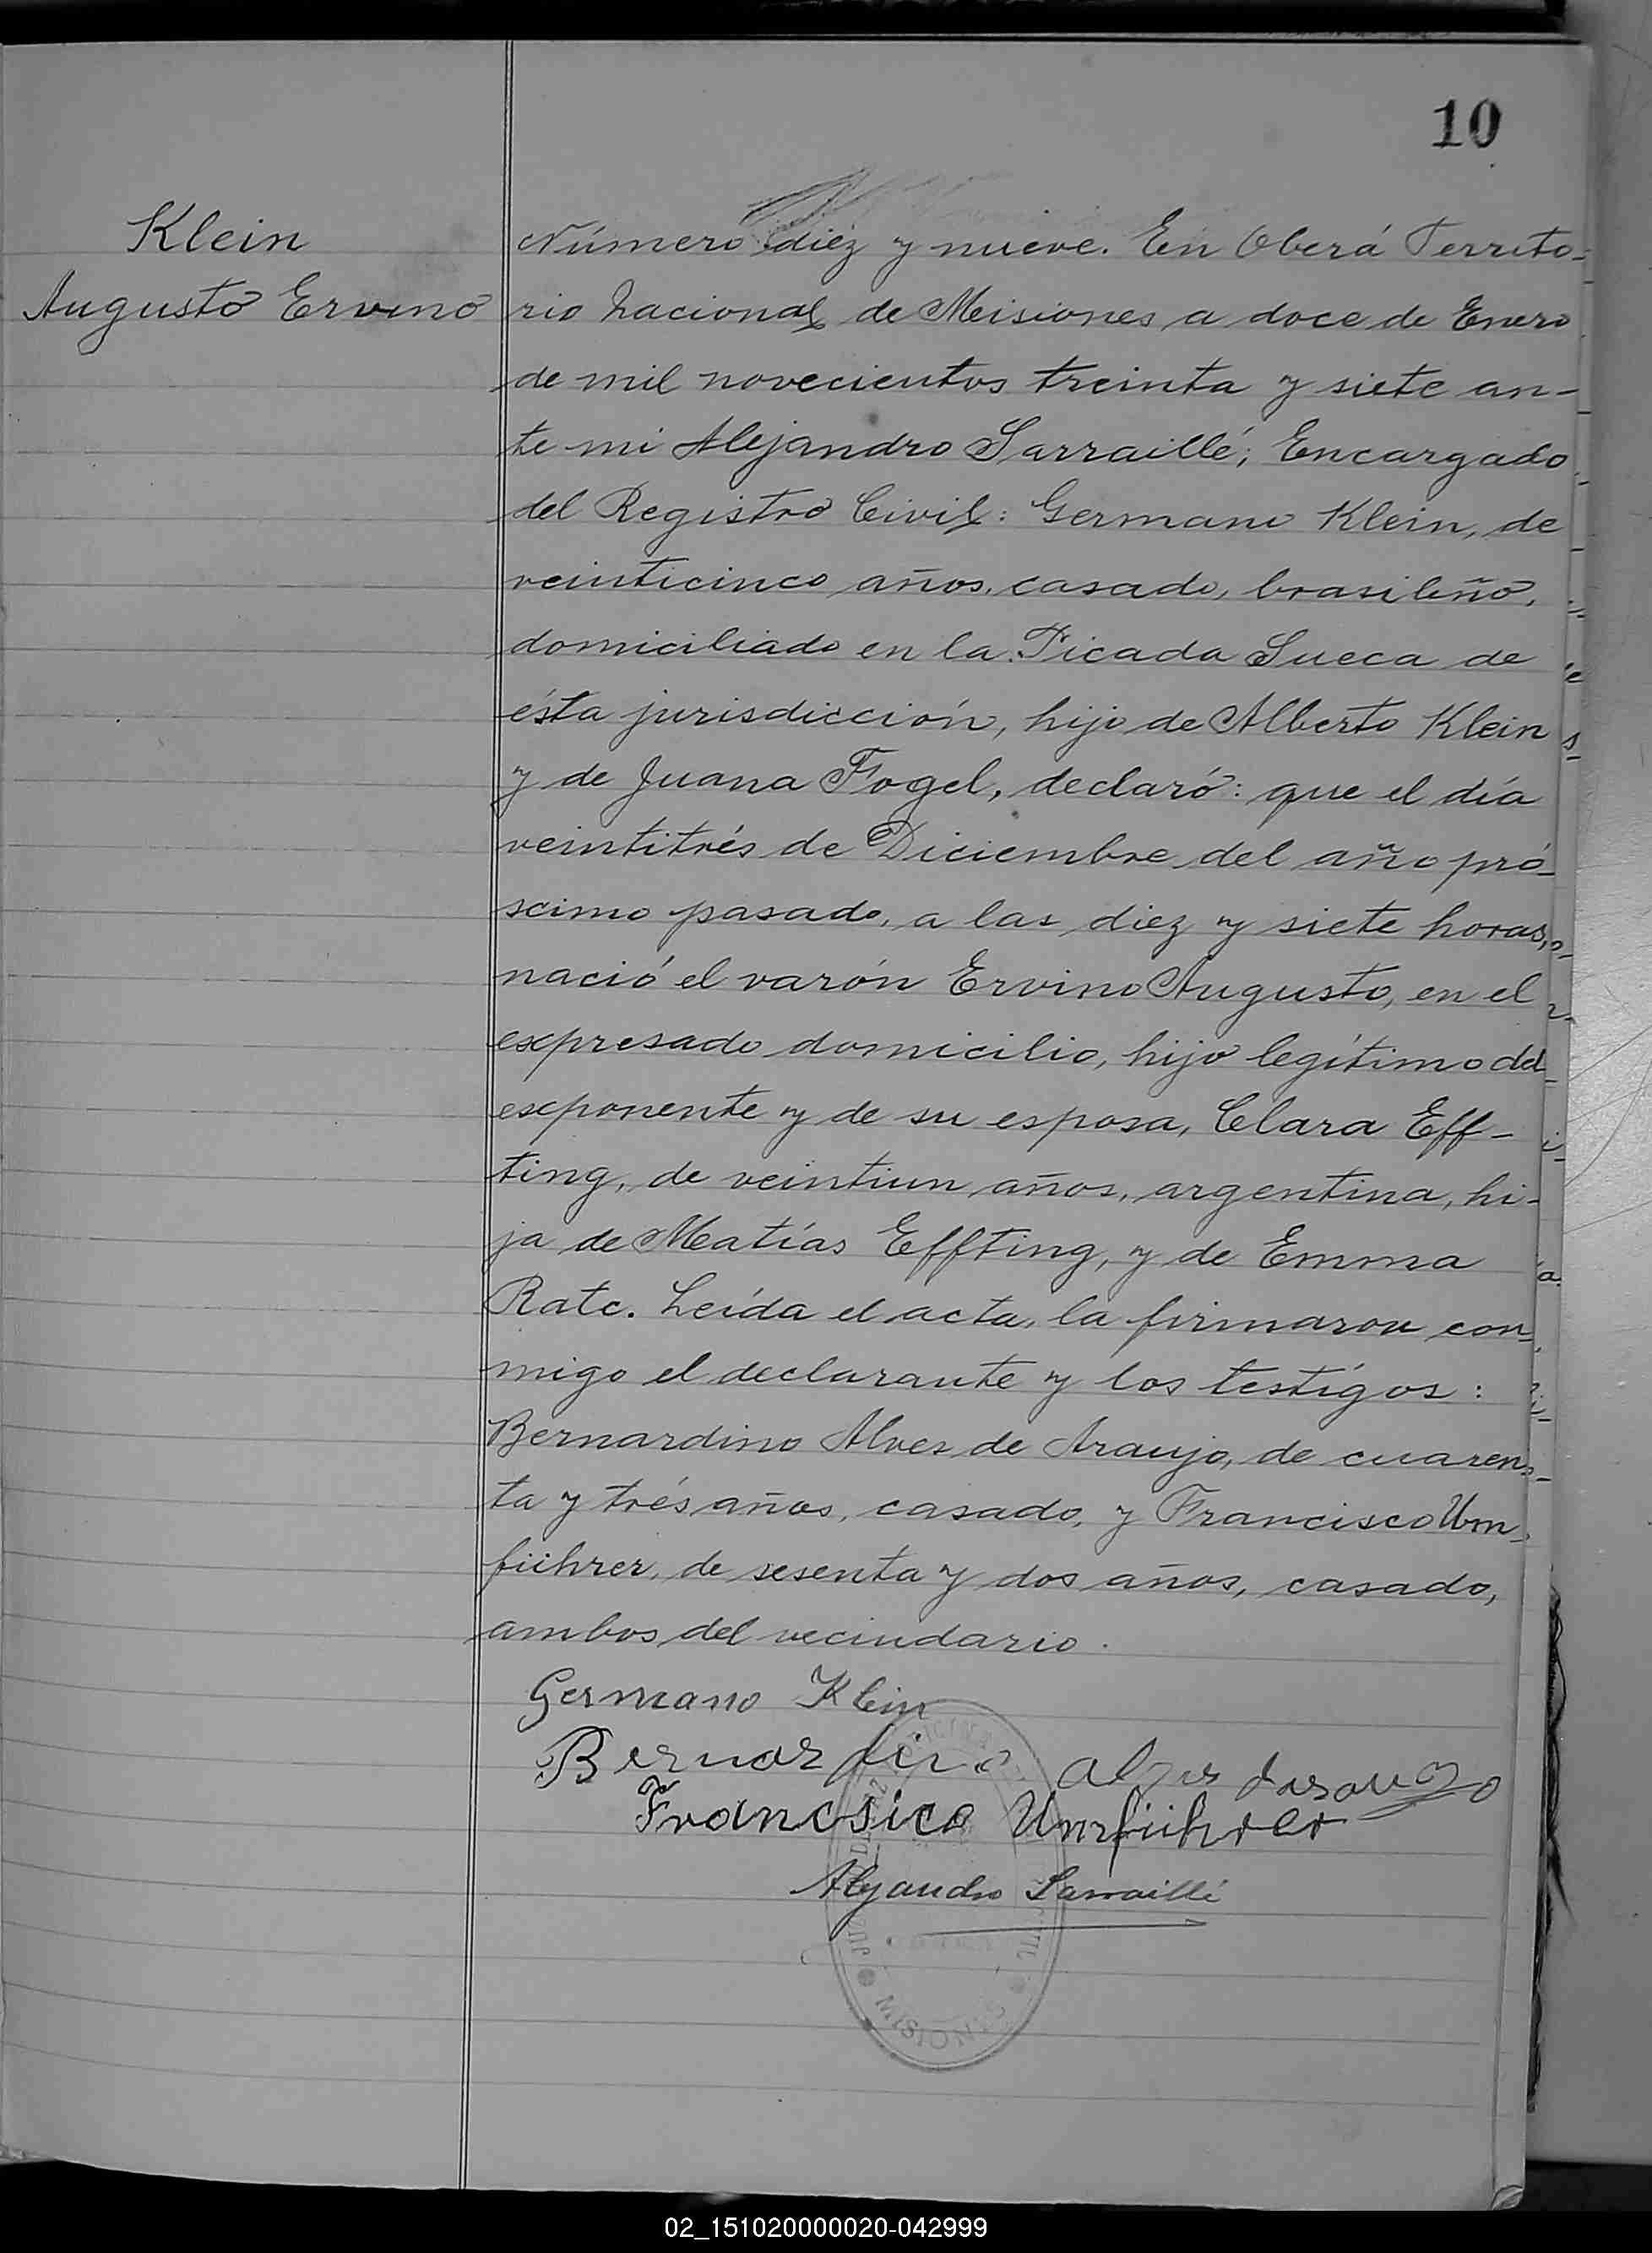 10
Klein
Augusto Ervino
Número diez y nueve. En Oberá Territo-
rio Nacional de Misiones a doce de Enero
de mil novecientos treinta y siete an-
te mi Alejandro Sarraillé; Encargado
del Registro Civil: Germano Klein, de
veinticinco años, casado, brasileño,
domiciliado en la Picada Sueca de
ésta jurisdicción, hijo de Alberto Klein
y de Juana Fogel, declaró: que el día
veintitrés de Diciembre del año pró-
scimo pasado, a las diez y siete horas,
nació el varón Ervino Augusto, en el
expresado domicilio, hijo legítimo del
exponente y de su esposa, Clara Eff-
ting, de veintiun años, argentina, hi-
ja de Matías Effting, y de Emma
Ratc. Leída el acta, la firmaron con-
migo el declarante y los testigos:
Bernardino Alves de Araujo, de cuaren-
ta y trés años, casado, y Francisco Um-
führer, de sesenta y dos años, casado,
ambos del vecindario.
Germano Klein
Bernardino
Francisico Umführer
Alejandro Sarraillé
MISIONES
02_151020000020-042999